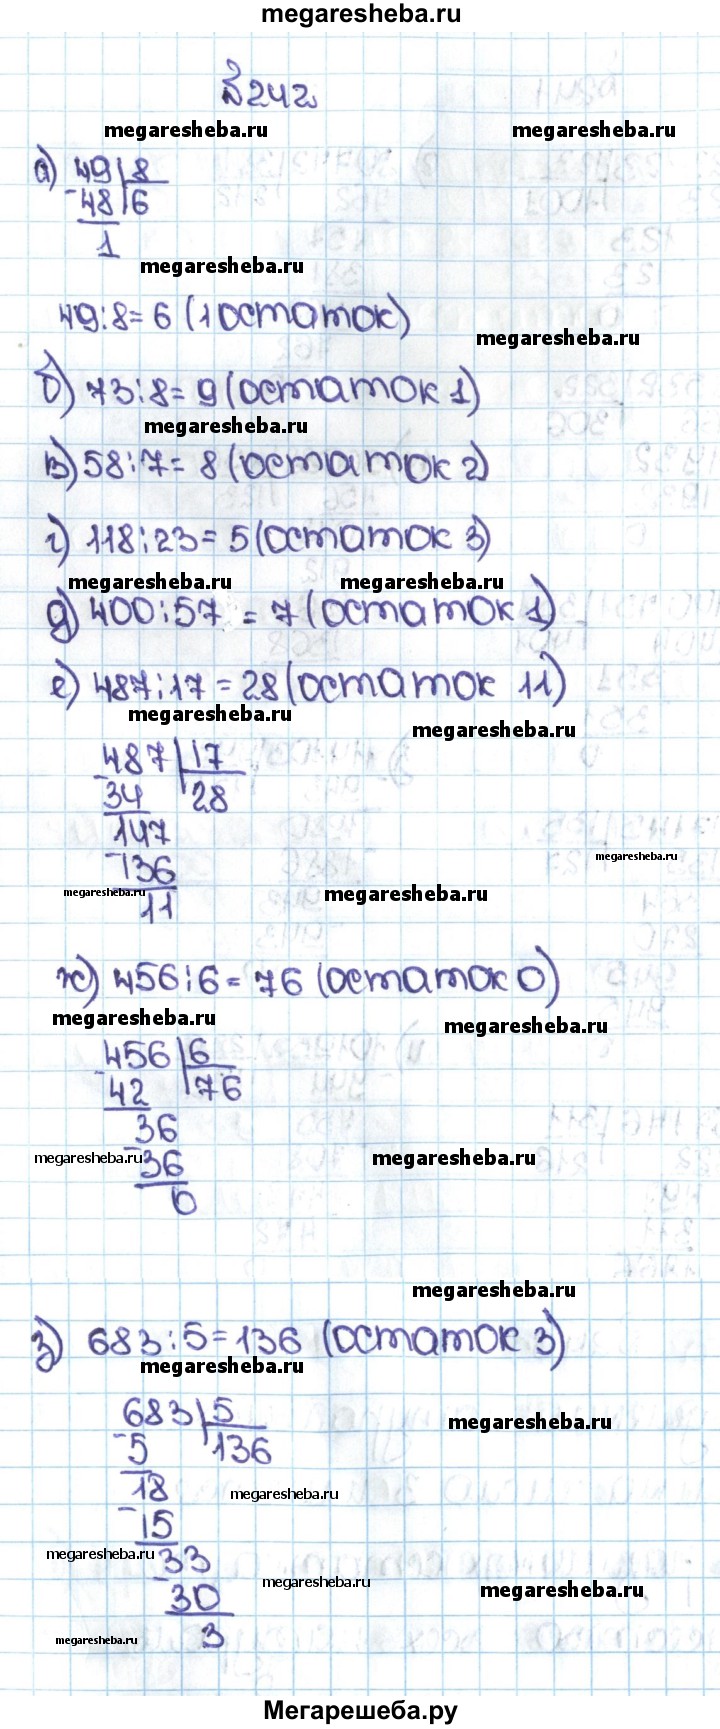 megaresheba.ru
№242
megaresheba.ru megaresheba.ru
а) 49 8
-48 6
1
megaresheba.ru
49:8=6 (1 остаток)
megaresheba.ru
б) 73:8=9 (остаток 1)
megaresheba.ru
в) 58:7=8 (остаток 2)
г) 118:23=5 (остаток 3)
megaresheba.ru megaresheba.ru
д) 400:57=7 (остаток 1)
е) 487:17=28 (остаток 11)
megaresheba.ru
megaresheba.ru
-487 17
34 28
147
-136
megaresheba.ru
megaresheba.ru megaresheba.ru
11
ж) 456:6=76 (остаток 0)
megaresheba.ru megaresheba.ru
-456 6
42 76
36
-36
megaresheba.ru megaresheba.ru
0
megaresheba.ru
з) 683:5=136 (остаток 3)
megaresheba.ru
683 5
megaresheba.ru
-5 136
18
megaresheba.ru
-15
33
megaresheba.ru
-30
megaresheba.ru megaresheba.ru
3
megaresheba.ru
Мегарешеба.ру